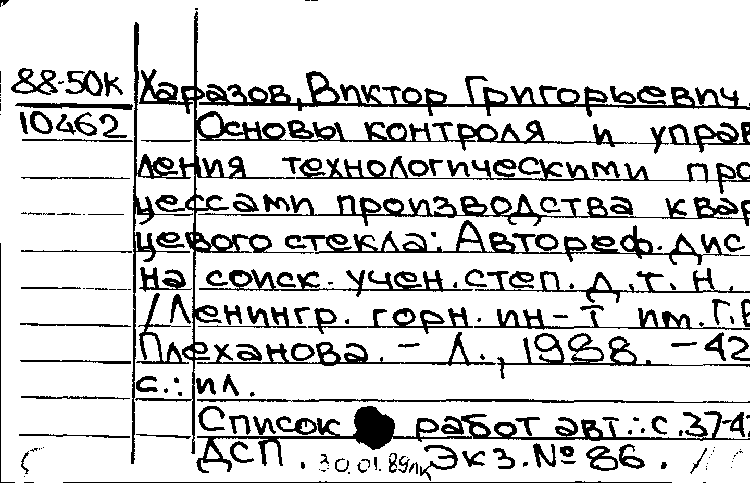 88-50К Харазов, Виктор Григорьевич.
10462 Основы контроля и управ
ления технологическими про
цессами производства квар
цевого стекла: Автореф. дис
на соиск. учен. степ. д.т.н.
/Ленингр. горн. ин-т им. Г.В
Плеханова. - Л., 1988. - 42
с.: ил.
Список работ авт.: с. 37-4
ДСП. 30.01.89 Экз. № 86.